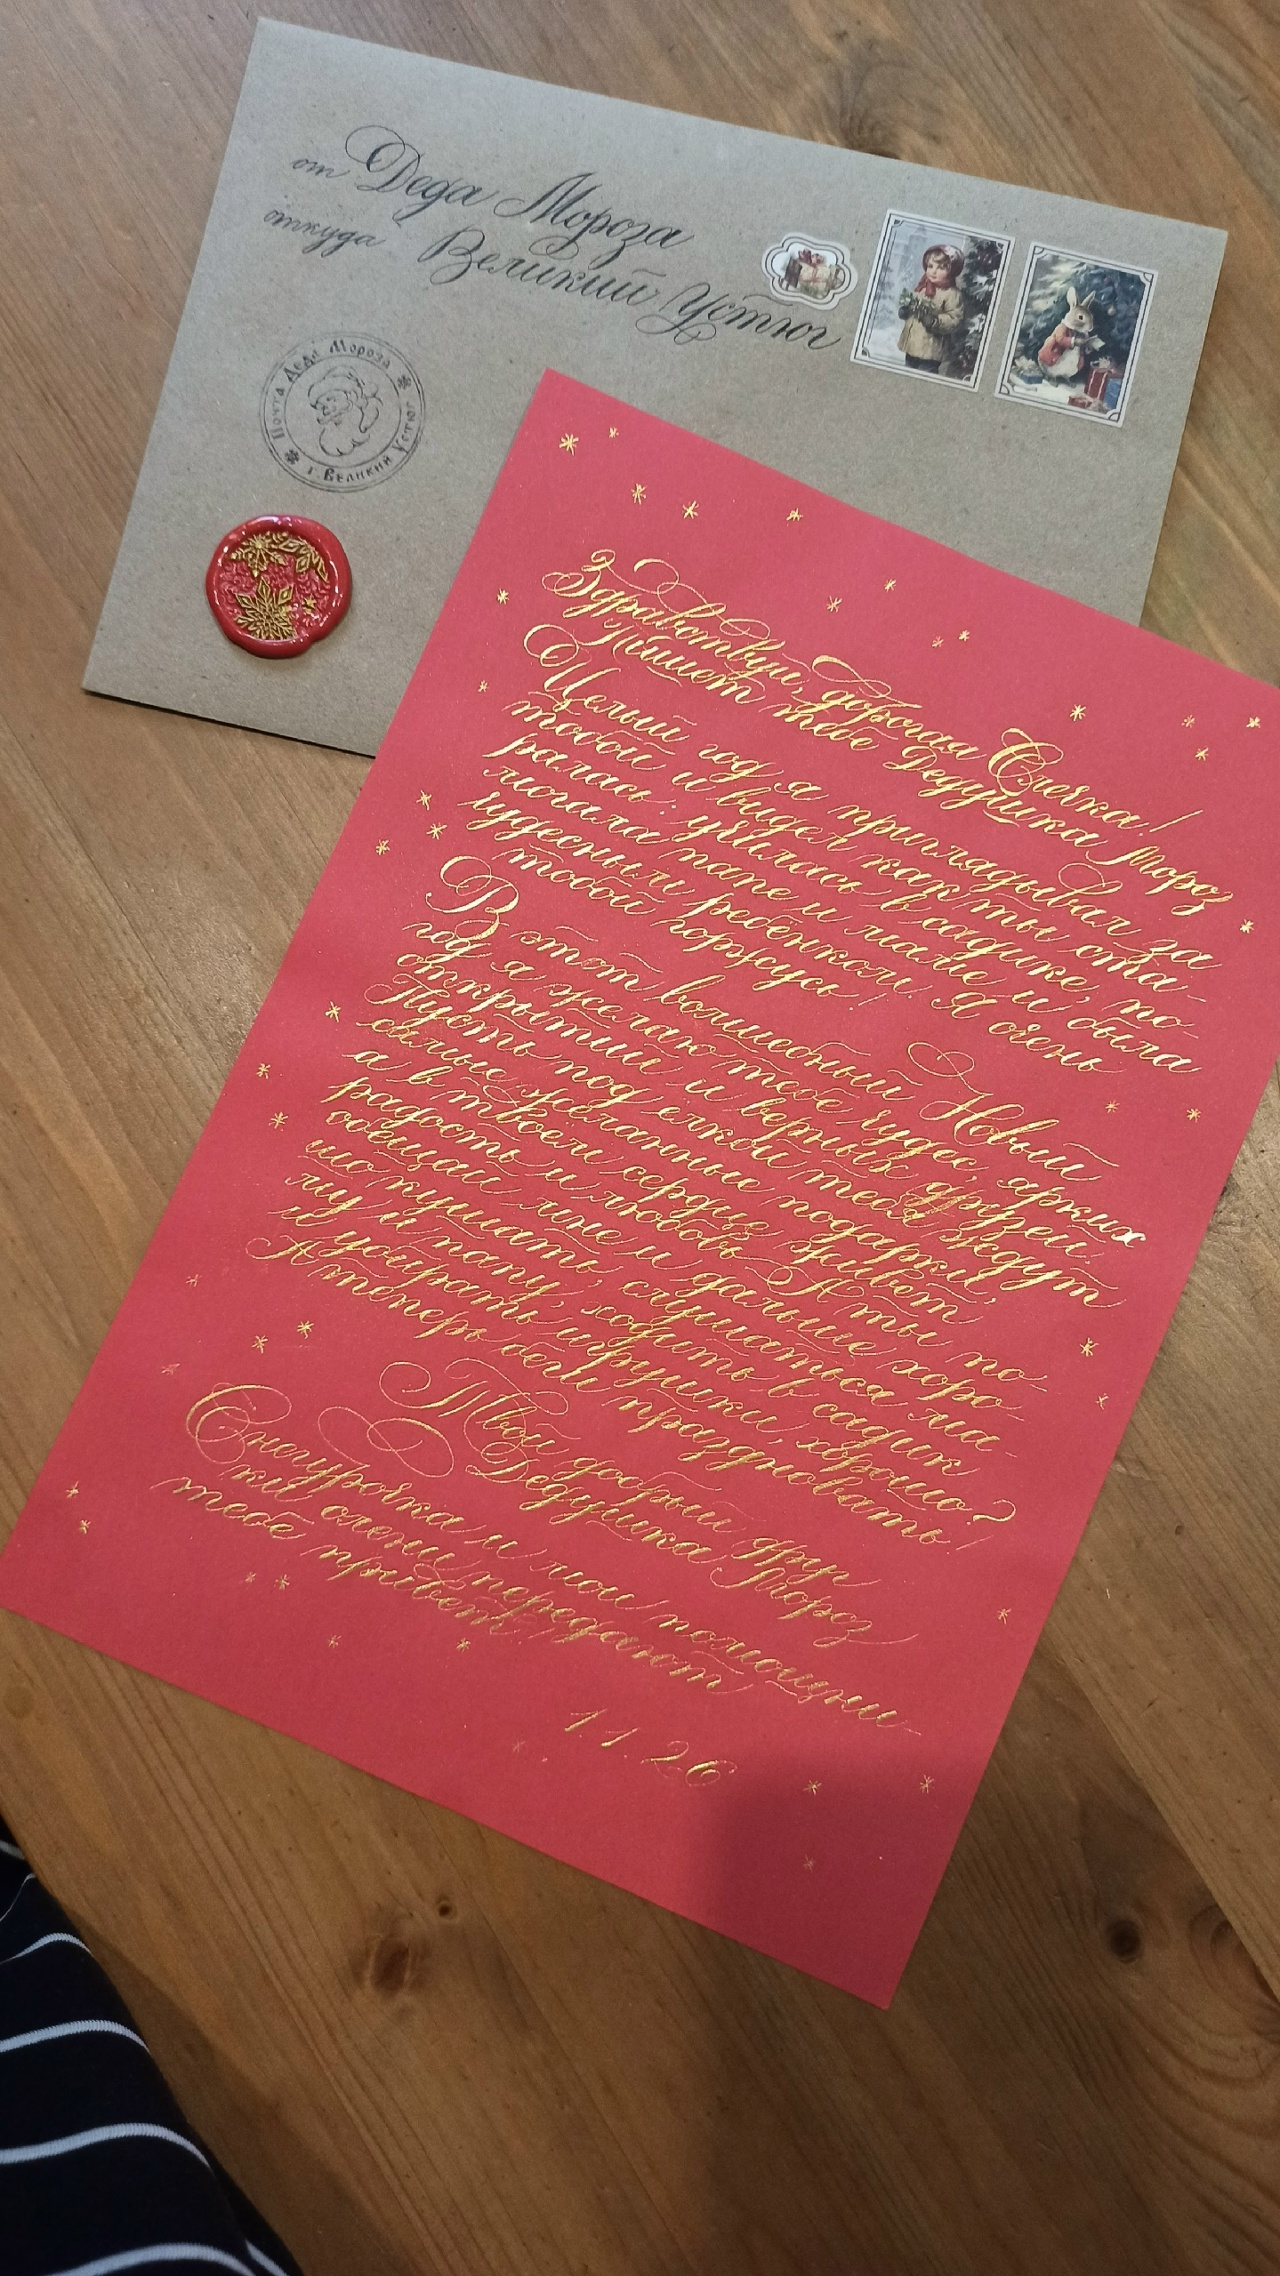 от Деда Мороза
откуда Великий Устюг
Почта Деда Мороза
г. Великий Устюг
Здравствуй, дорогая Олечка!
Пишет тебе Дедушка Мороз
Целый год я приглядывал за
тобой и видел как ты ста-
ралась: училась в садике, по-
могала папе и маме и была
чудесным ребёнком! Я очень
тобой горжусь!
В этот волшебный Новый
год я желаю тебе чудес, ярких
открытий и верных друзей.
Пусть под елкой тебя ждут
самые желанные подарки,
а в твоем сердце живет
радость и любовь. А ты по-
обещай мне и дальше хоро-
шо кушать, слушаться ма-
му и папу, ходить в садик
и убирать игрушки, хорошо?
А теперь беги праздновать!
Твой добрый друг
Дедушка Мороз
Снегурочка и мои помощни-
ки олени передают
тебе привет!
1.1.26